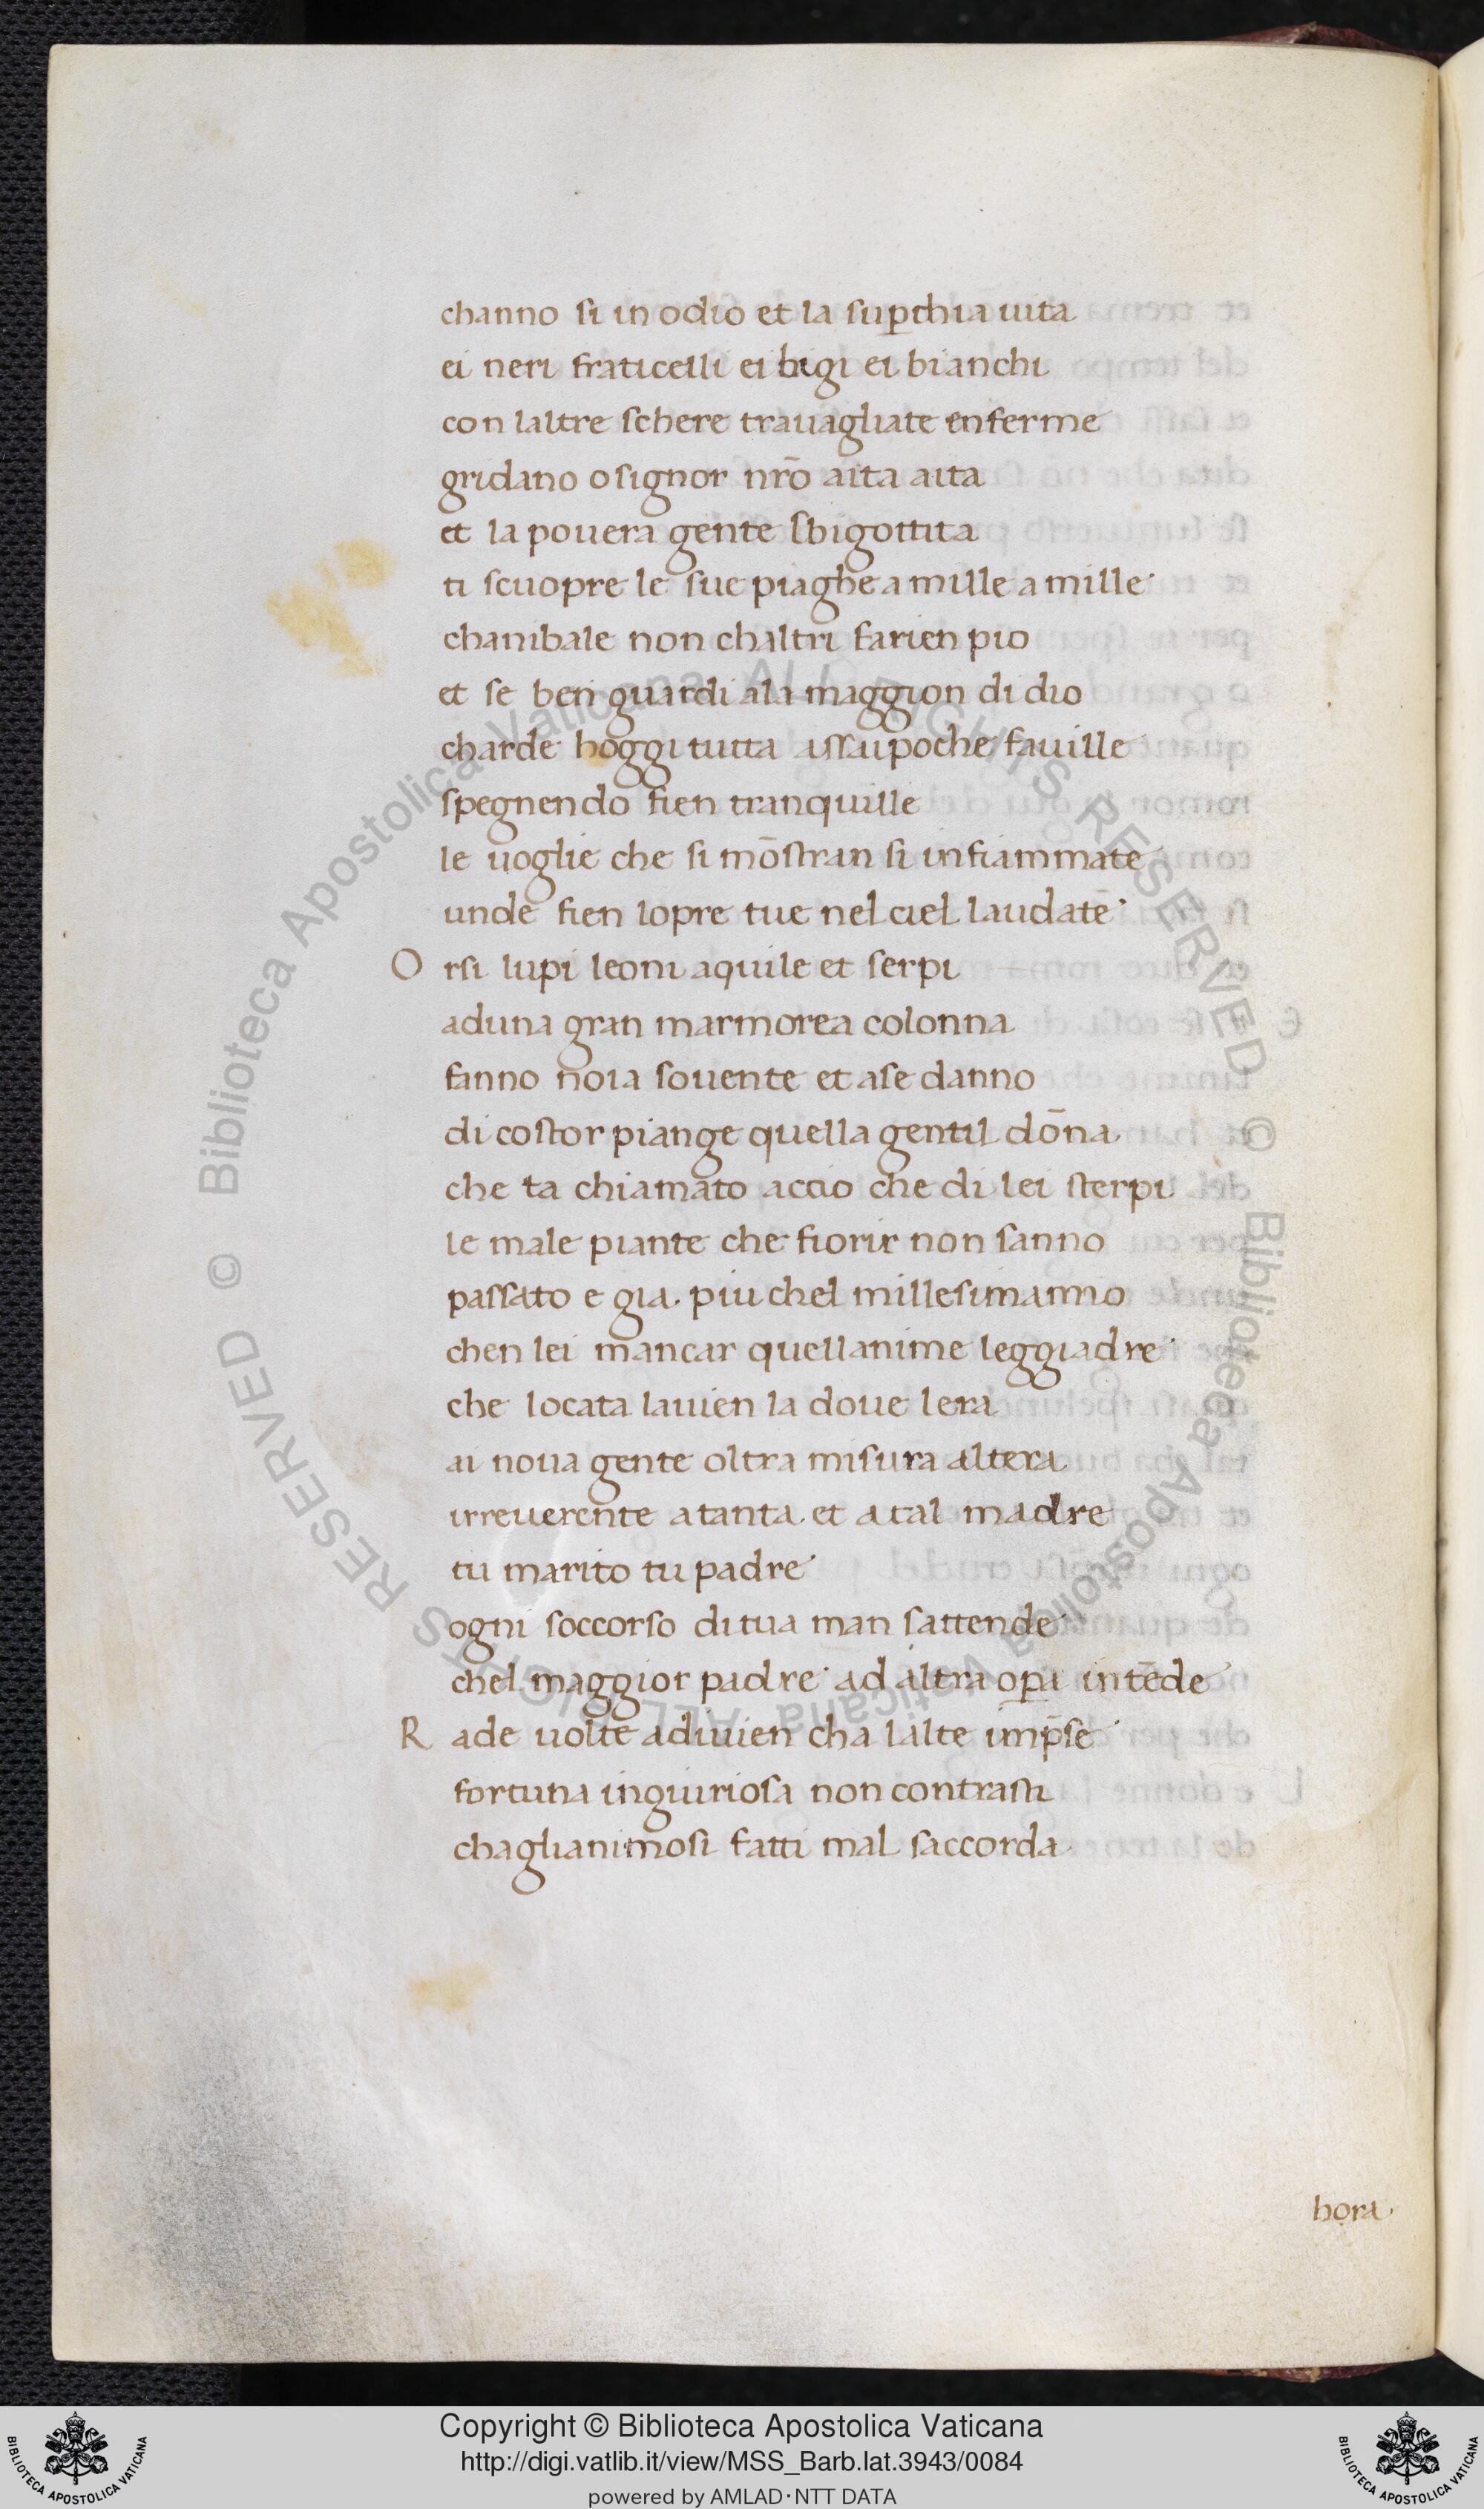 channo si in odio et la sup̱chia uita
ei neri fraticelli ei bigi ei bianchi
con laltre schere trauagliate enferme
gridano o signor nr̄o aita aita
et la pouera gente sbigottita
ti scuopre le sue piaghe a mille a mille
chanibale non chaltri farien pio
et se ben guardi ala maggion di dio
charde hoggi tutta assai poche fauille
spegnendo fien tranquille
le uoglie che si mōstran si infiammate
unde fien lopre tue nel ciel laudate
O rsi lupi leoni aquile et serpi
aduna gran marmorea colonna
fanno noia souente et a se danno
di costor piange quella gentil dōna
che ta chiamato accio che di lei sterpi
le male piante che fiorir non sanno
passato e gia piu chel millesimanno
chen lei mancar quellanime leggiadre
che locata lauien la doue lera
ai noua gente oltra misura altera
irreuerente a tanta et a tal madre
tu marito tu padre
ogni soccorso di tua man sattende
chel maggior padre ad altra op̱a intēde
R ade uolte adiuien cha lalte imp̄se
fortuna ingiuriosa non contrasti
chagli animosi fatti mal saccorda
hora
Biblioteca Apostolica Vaticana ALL RIGHTS RESERVED © Biblioteca Apostolica Vaticana ALL RIGHTS RESERVED ©
Copyright © Biblioteca Apostolica Vaticana
http://digi.vatlib.it/view/MSS_Barb.lat.3943/0084
powered by AMLAD·NTT DATA
BIBLIOTECA APOSTOLICA VATICANA
BIBLIOTECA APOSTOLICA VATICANA